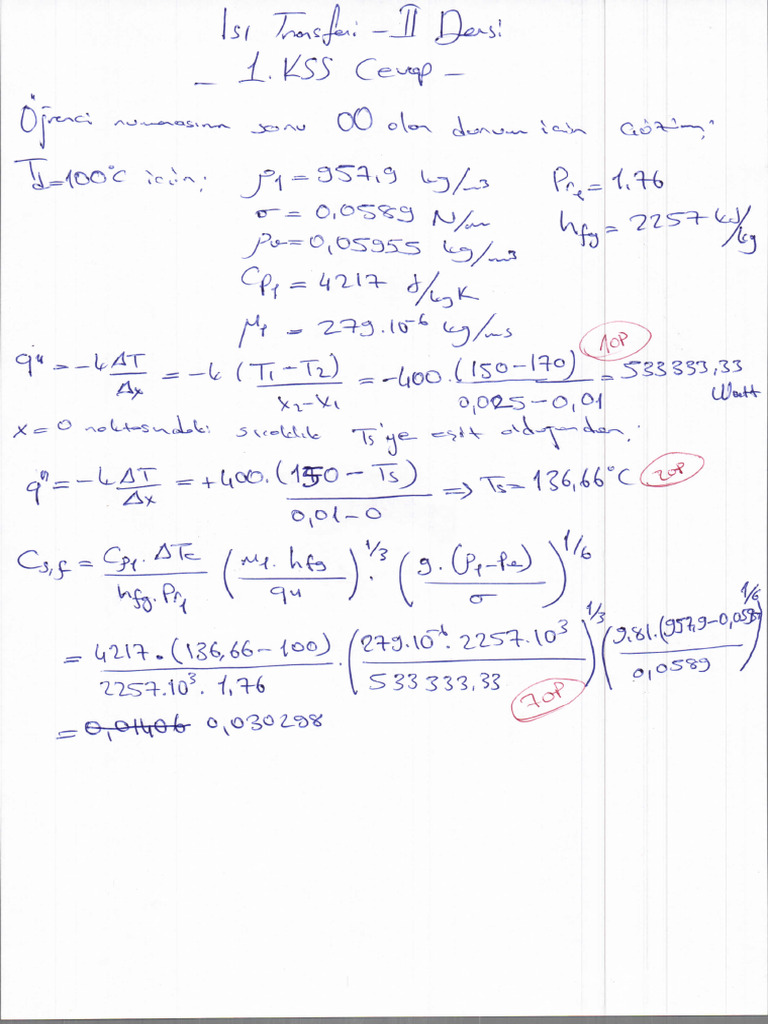 Isı Transferi – II Dersi
– 1. KSS Cevap –
Öğrenci numarasının sonu 00 olan durum için çözüm;
Td=100°C için; ρl = 957,9 kg/m3 Prl = 1,76
σ = 0,0589 N/m hfg = 2257 kJ/kg
ρv = 0,05955 kg/m3
Cpl = 4217 J/kgK
μl = 279.10-6 kg/ms
q" = -k ΔT/Δx = -k (T1-T2)/(x2-x1) = -400.(150-170)/(0,025-0,01) = 533333,33 Watt 10P
x=0 noktasındaki sıcaklık Ts'ye eşit olduğundan;
q" = -k ΔT/Δx = +400.(150-Ts)/(0,01-0) => Ts = 136,66°C 20P
Cs,f = Cpl.ΔTe/(hfg.Prl) (μl.hfg/q")^1/3 . (g.(ρl-ρv)/σ)^1/6
= 4217.(136,66-100)/(2257.10^3.1,76) . (279.10^-6.2257.10^3/533333,33)^1/3 (9,81.(957,9-0,0589)/0,0589)^1/6 70P
= 0,01406 0,030298